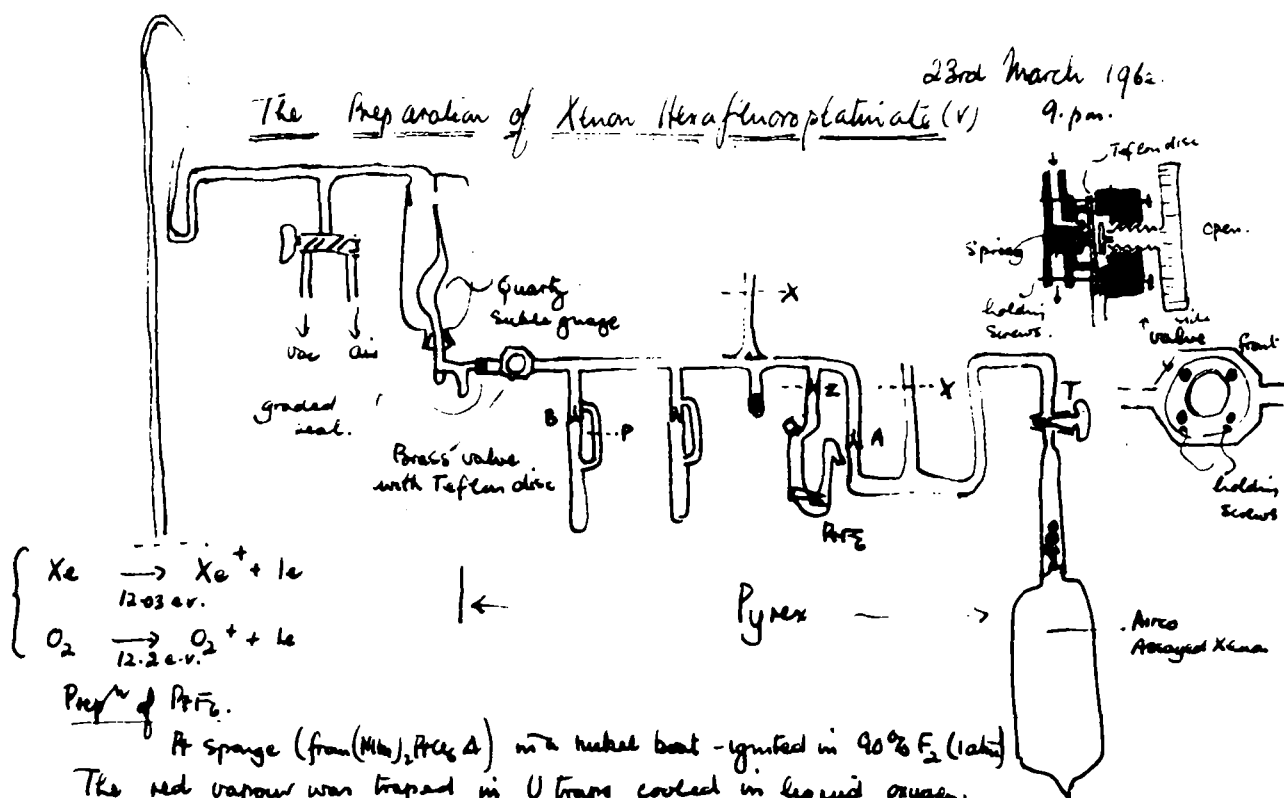 23rd March 1962.
The Preparation of Xenon Hexafluoroplatinate (V)
9. pm.
Teflon disc
open.
Spring
holding
screws.
side
valve
front
holding
screws
Quartz
guage
vac
air
graded
seal.
Brass valve
with Teflon disc
B
P
X
Z
A
X
T
PtF6
Xe → Xe+ + 1e
12.03 e.v.
O2 → O2+ + 1e
12.2 e.v.
Pyrex
Airco
Assayed Xenon
Prepn of PtF6.
Pt sponge (from (NH4)2PtCl6 Δ) in a nickel boat - ignited in 90% F2 (1 atm)
The red vapour was traped in U traps cooled in liquid oxygen.